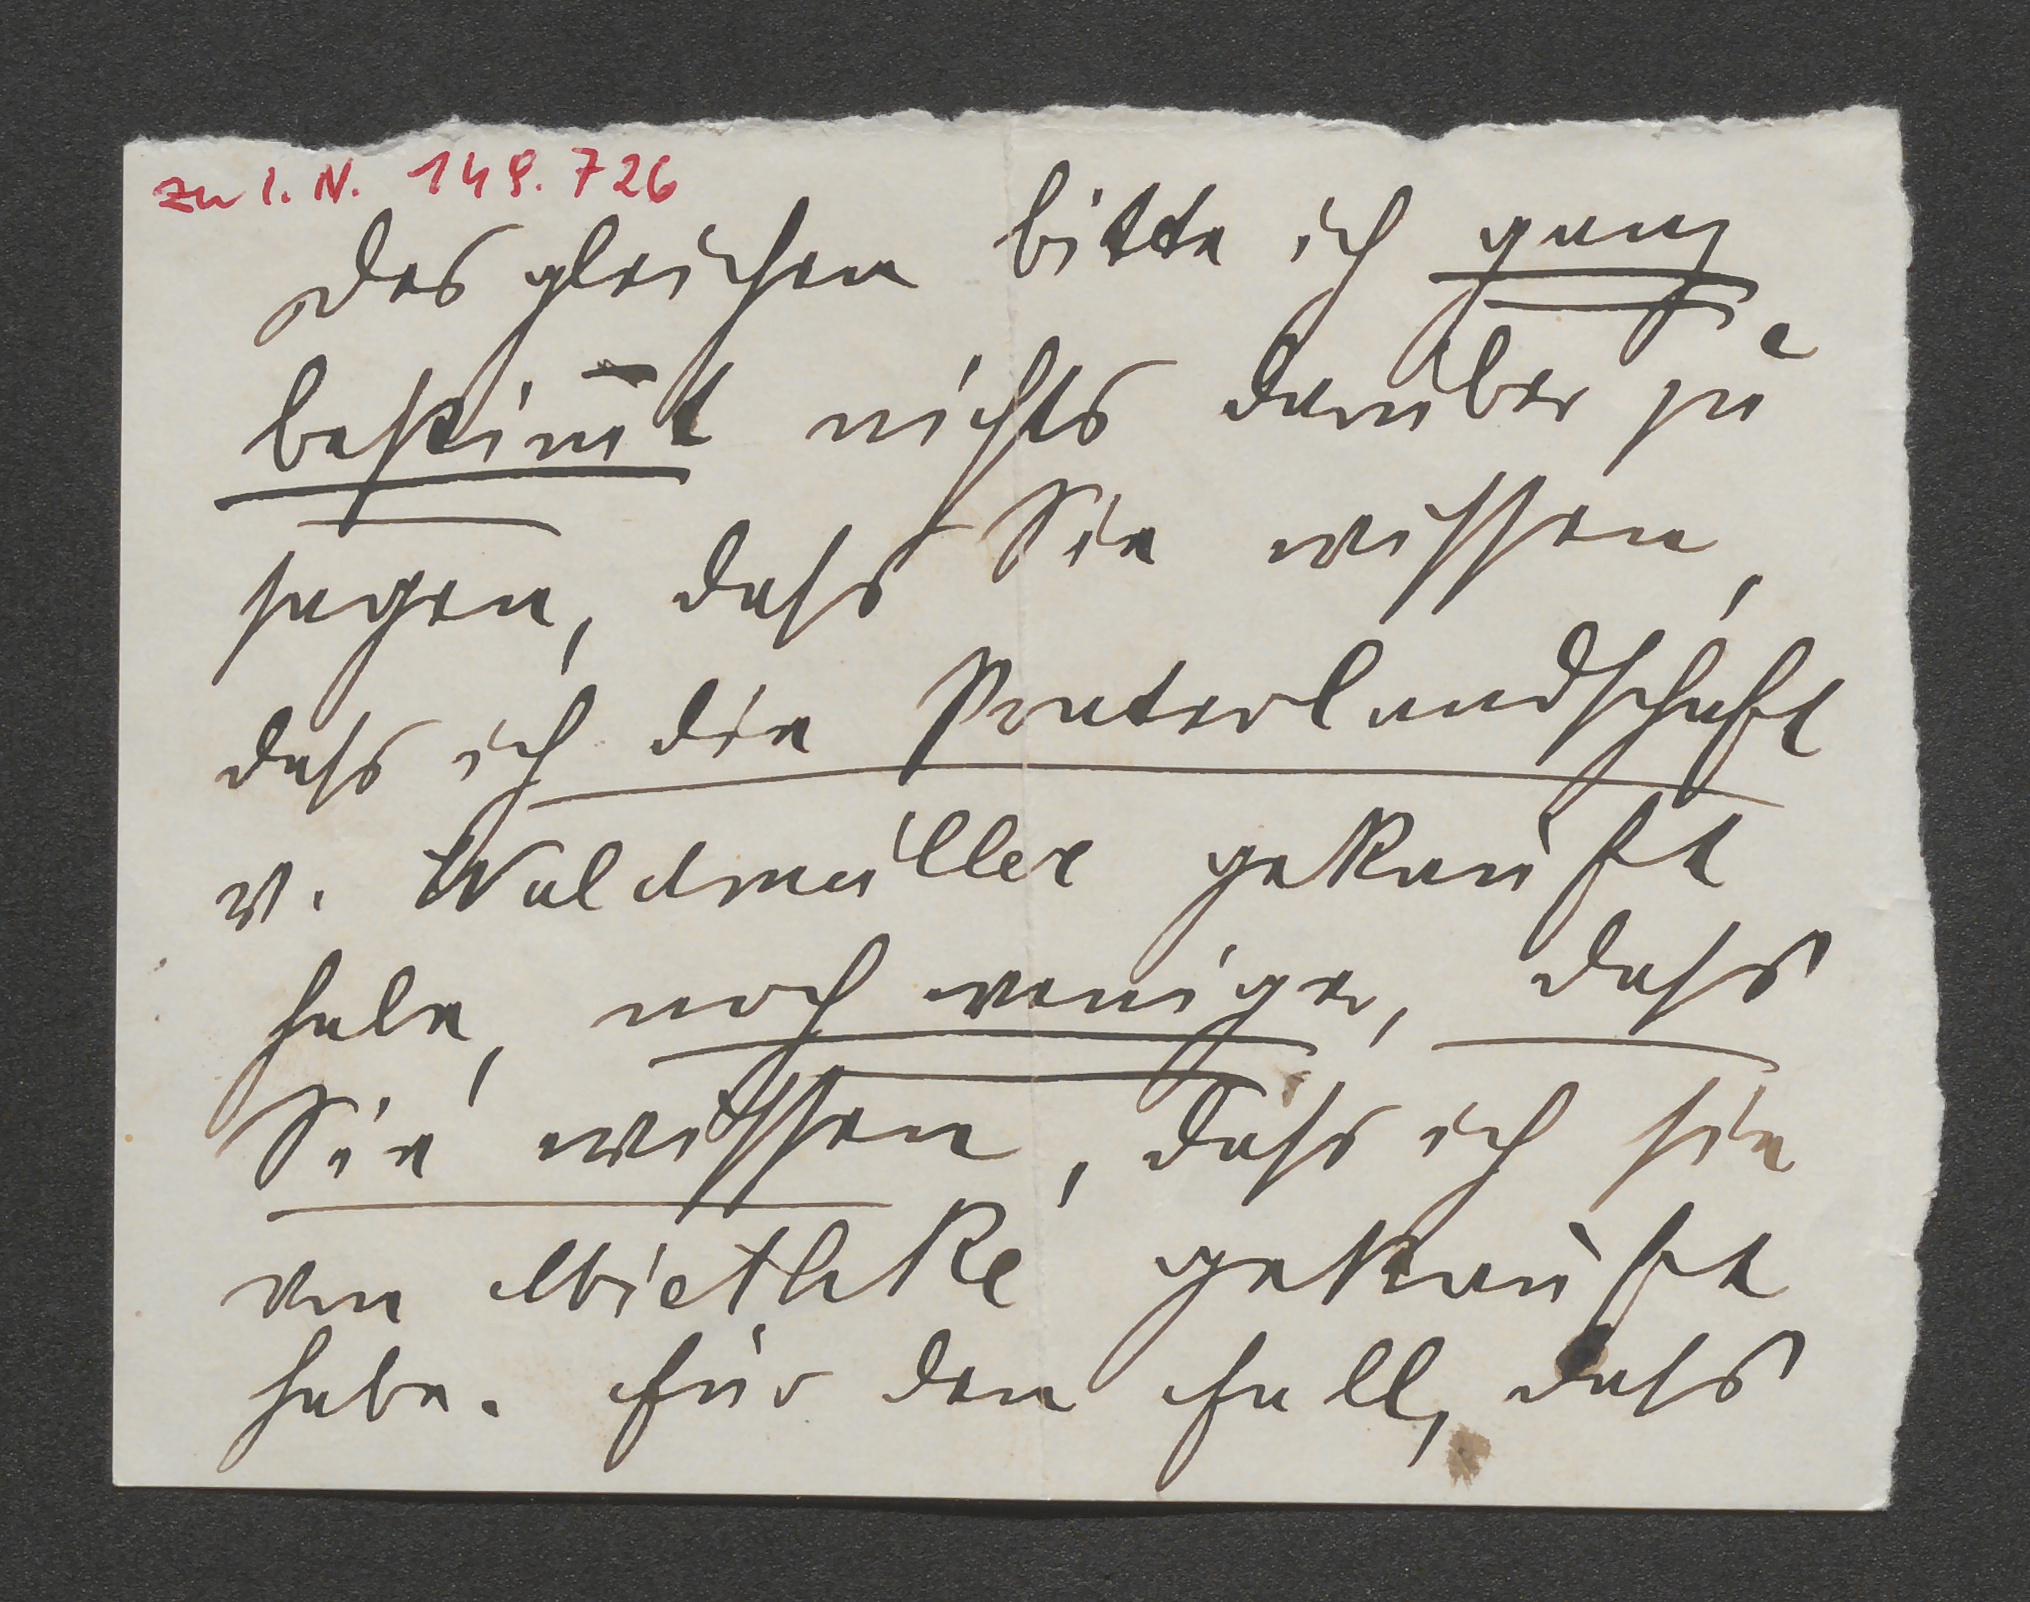 zu I. N. 149.726
Desgleichen bitte ich ganz
bestim̅t nichts darüber zu
sagen, dass Sie wissen,
dass ich die Praterlandschaft
v. Waldmüller gekauft
habe, noch weniger, dass
Sie wissen, dass ich sie
von Miethke gekauft
habe. Für den Fall, dass